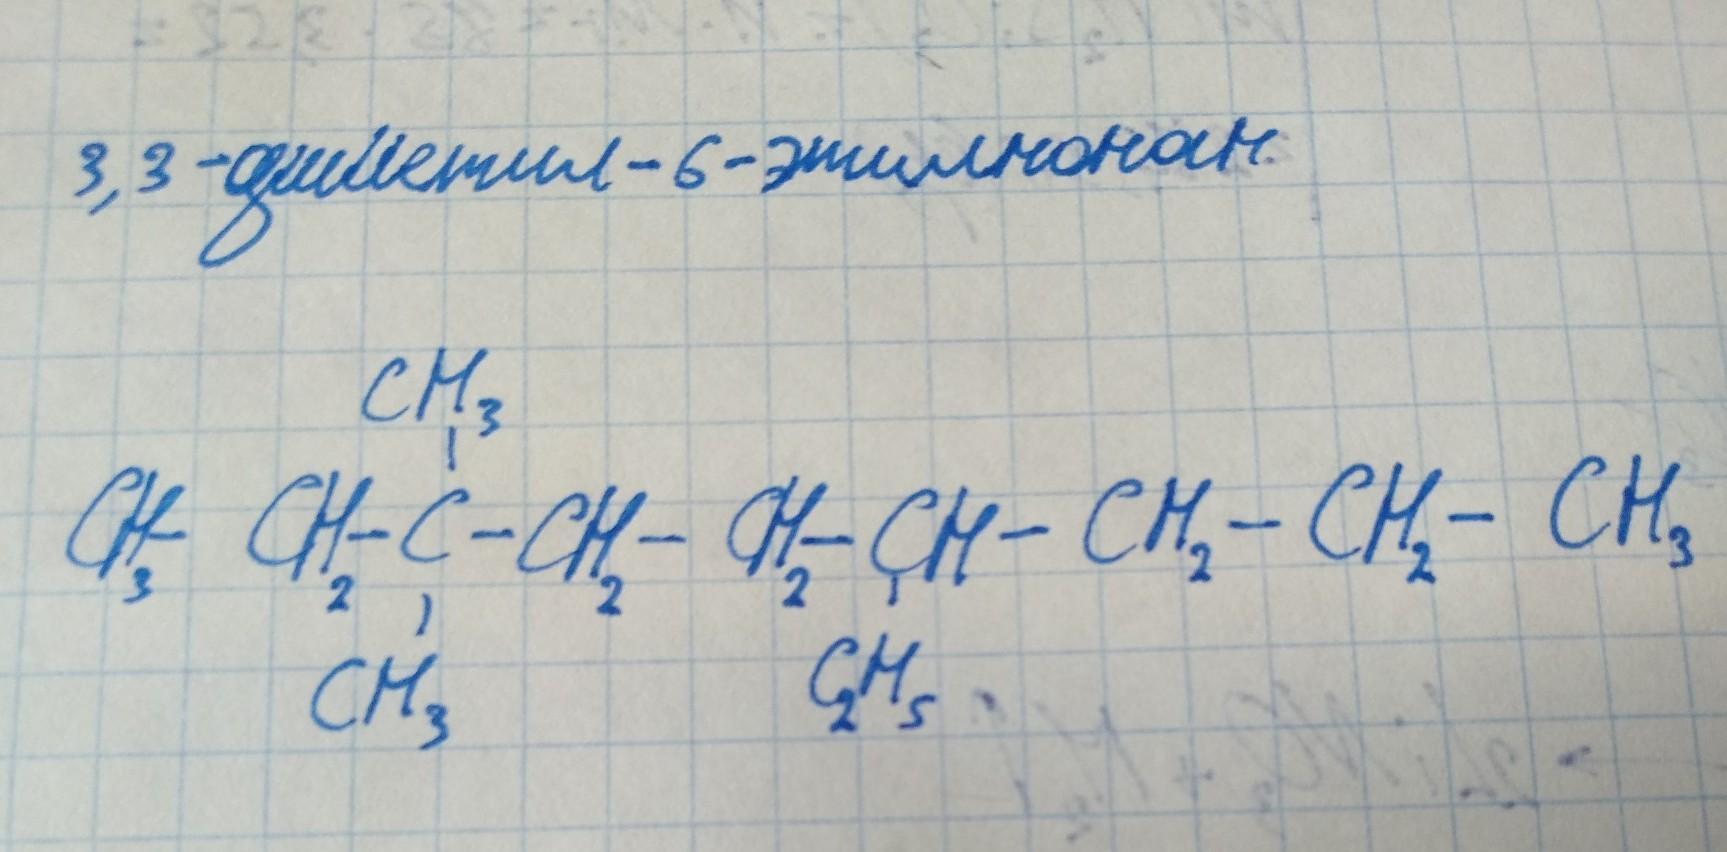 3,3-диметил-6-этилнонан
CH3
CH3- CH2-C-CH2- CH2-CH-CH2-CH2- CH3
CH3 C2H5